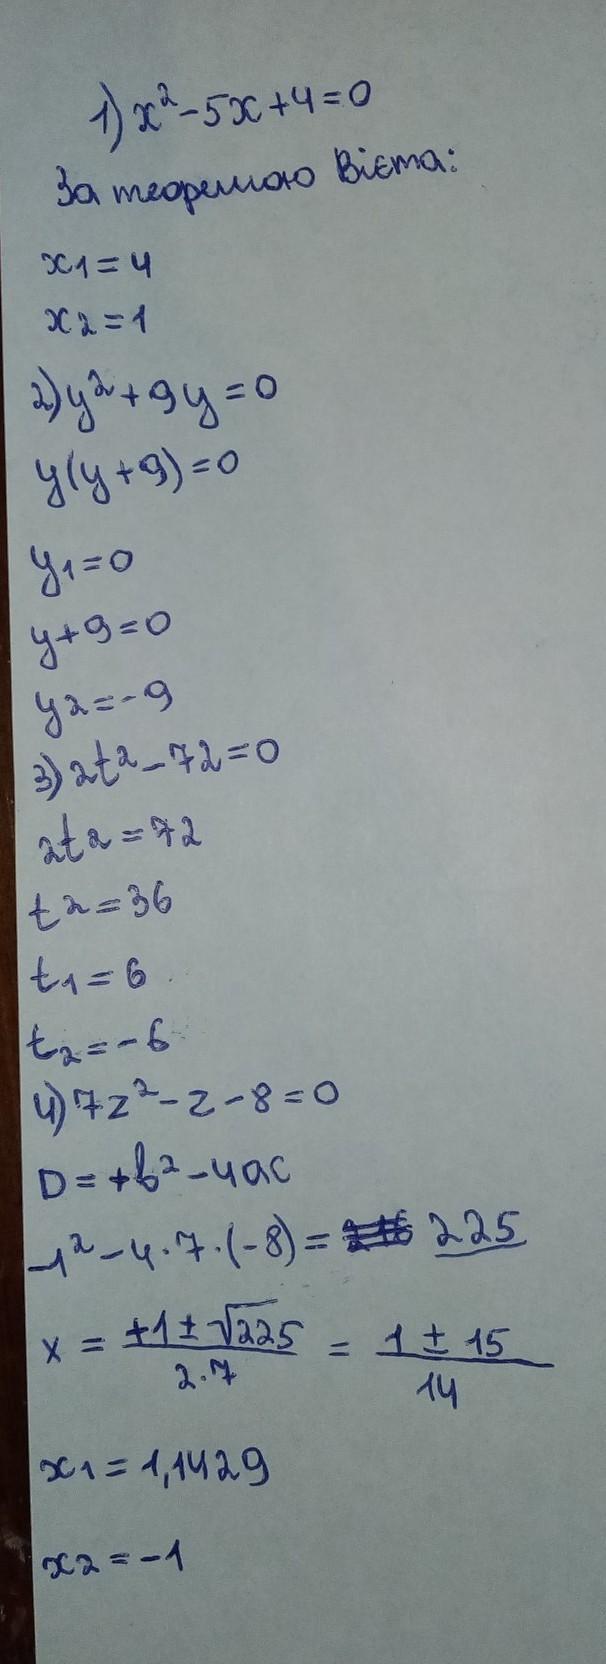 1) x² - 5x + 4 = 0
За теоремою Вієта:
x1 = 4
x2 = 1
2) y² + 9y = 0
y(y + 9) = 0
y1 = 0
y + 9 = 0
y2 = -9
3) 2t² - 72 = 0
2t² = 72
t² = 36
t1 = 6
t2 = -6
4) 7z² - z - 8 = 0
D = +b² - 4ac
-1² - 4·7·(-8) = 225
x = (+1 ± √225)/(2·7) = (1 ± 15)/14
x1 = 1,1429
x2 = -1